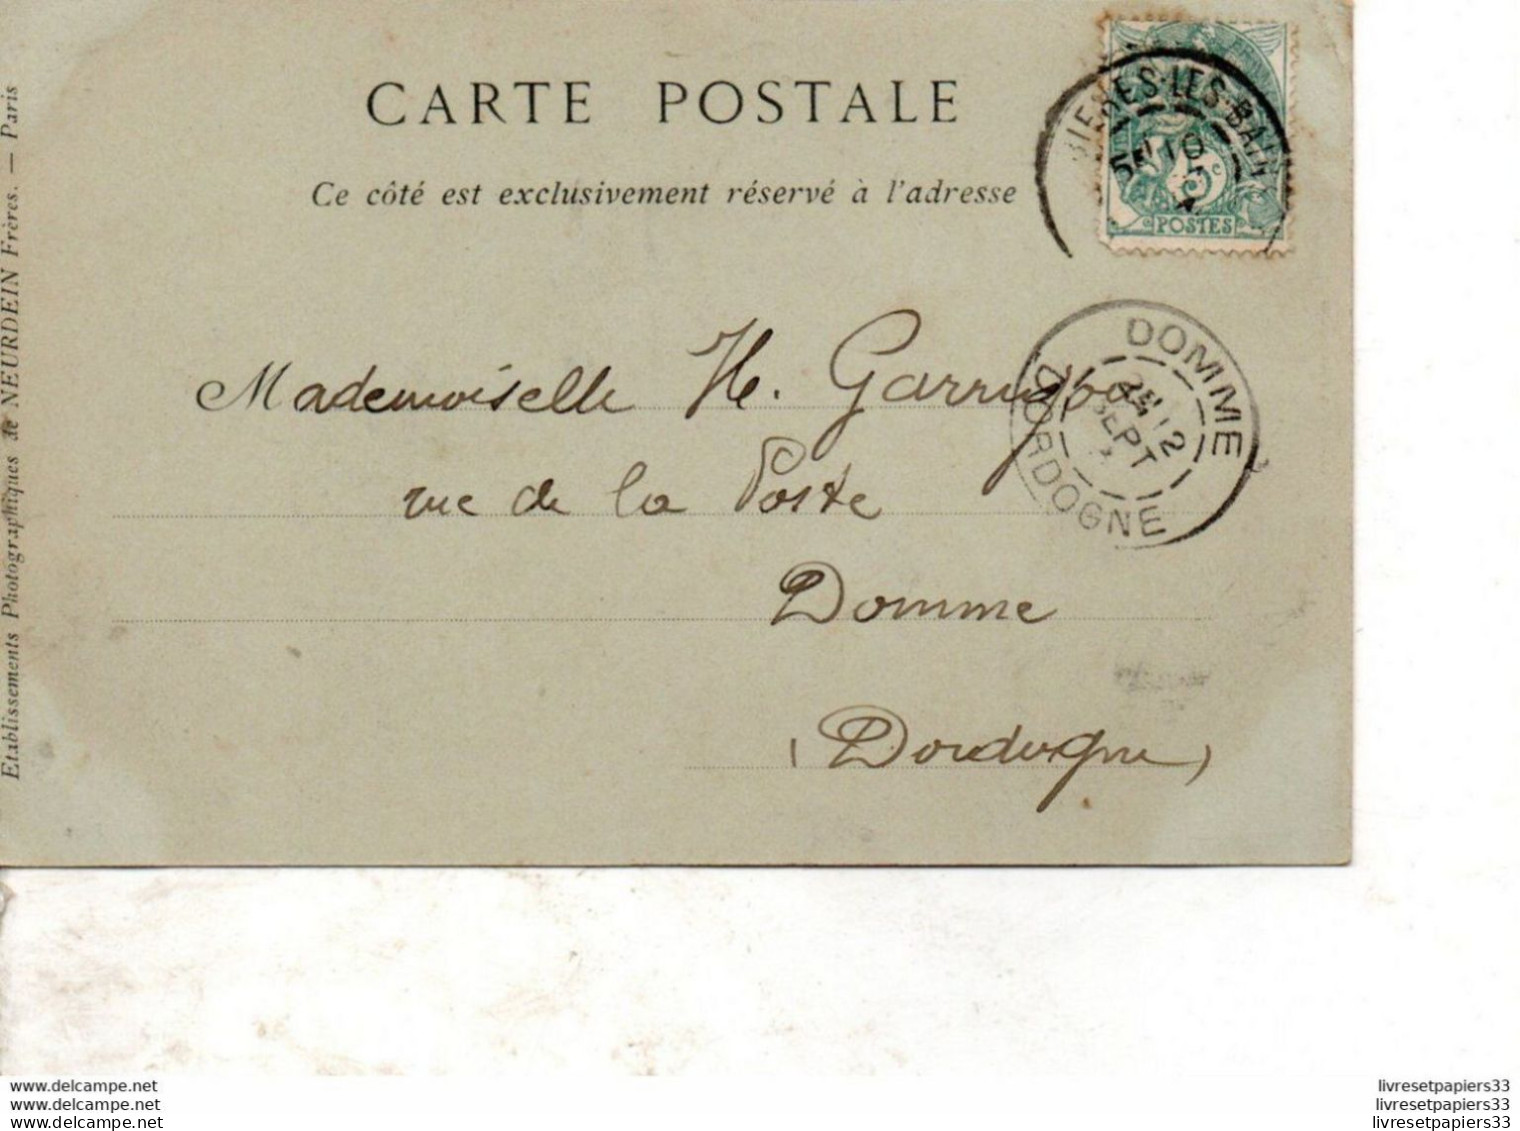 CARTE POSTALE
Ce côté est exclusivement réservé à l'adresse
Etablissements Photographiques de NEURDEIN Frères. — Paris
LES-BAIN
10
5c
POSTES
DOMME
12
SEPT
DORDOGNE
Mademoiselle H. Garrigou
rue de la Poste
Domme
(Dordogne)
www.delcampe.net
www.delcampe.net
www.delcampe.net
livresetpapiers33
livresetpapiers33
livresetpapiers33